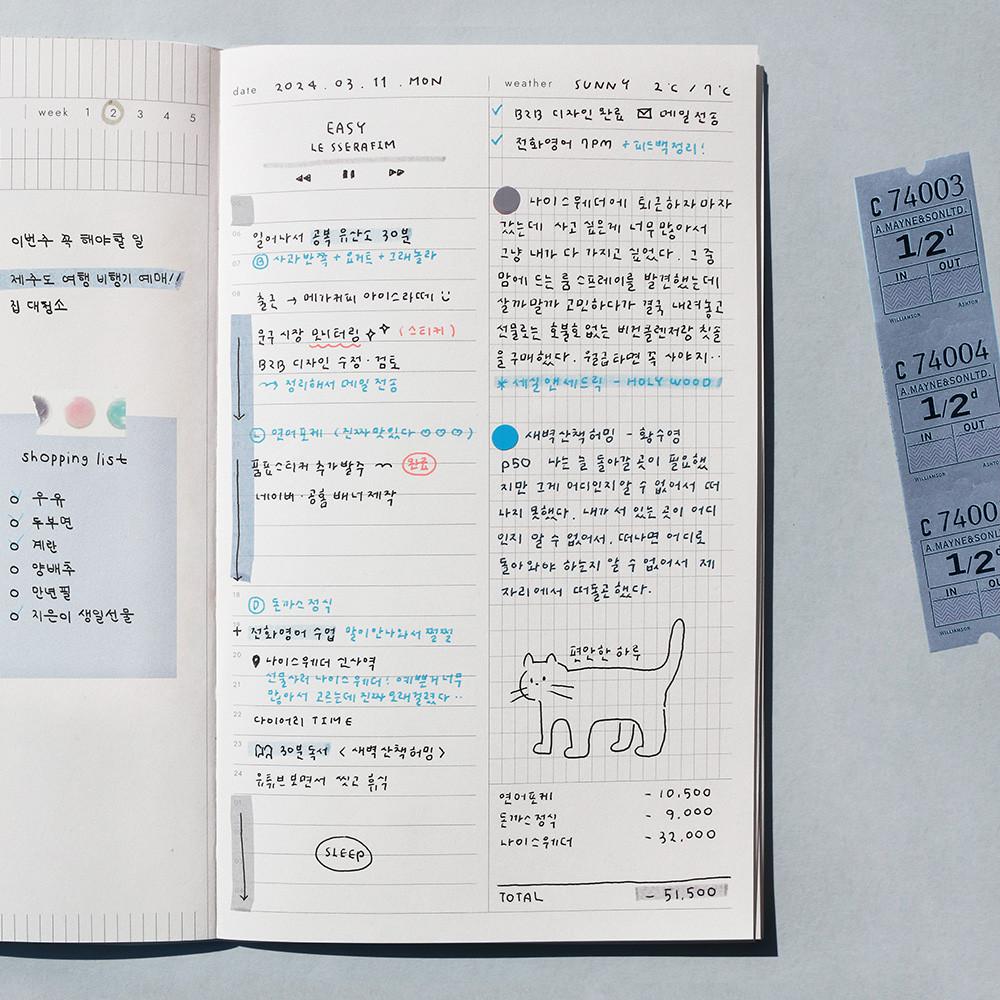 week 1 2 3 4 5
이번주 꼭 해야할 일
제주도 여행 비행기 예매!!
집 대청소
shopping list
우유
두부면
계란
양배추
만년필
지은이 생일선물
date 2024.03.11.MON
weather SUNNY 2℃ / 7℃
EASY
LE SSERAFIM
06 일어나서 공복 유산소 30분
07 B 사과반쪽 + 요거트 + 그래놀라
08 출근 → 메가커피 아이스라떼
문구 시장 모니터링 (스티커)
B2B 디자인 수정·검토
정리해서 메일 전송
L 연어포케 (진짜맛있다
품표스티커 추가발주 ~ 완료
네이버·공홈 배너 제작
18 D 돈까스정식
19 + 전화영어 수업 말이안나와서 쩔쩔
20 나이스웨더 신사역
선물사러 나이스웨더! 예쁜게너무
21 많아서 고르는데 진짜오래걸렸다..
22 다이어리 TIME
23 30분독서 <새벽산책허밍>
24 유튜브보면서 씻고 휴식
01
SLEEP
B2B 디자인 완료 메일전송
전화영어 7PM + 피드백정리!
나이스웨더에 퇴근하자마자
갔는데 사고 싶은게 너무많아서
그냥 내가 다 가지고 싶었다. 그 중
맘에 드는 룸 스프레이를 발견했는데
살까말까 고민하다가 결국 내려놓고
선물로는 호불호없는 비건콜렌저랑 칫솔
을구매했다. 월급타면 꼭 사야지..
*세실앤세드릭 - HOLY WOOD
새벽산책허밍 - 황수영
p50 나는 늘 돌아갈 곳이 필요했
지만 그게 어디인지 알 수 없어서 떠
나지 못했다. 내가 서 있는 곳이 어디
인지 알 수 없어서. 떠나면 어디로
돌아와야 하는지 알 수 없어서 제
자리에서 떠돌곤했다.
편안한 하루
연어포케 - 10,500
돈까스정식 - 9,000
나이스웨더 - 32,000
TOTAL - 51,500
C 74003
A.MAYNE&SONLTD.
1/2d
IN OUT
WILLIAMSON ASHTON
C 74004
A.MAYNE&SONLTD.
1/2d
IN OUT
WILLIAMSON
C 7400
A.MAYNE&SONL
1/2
IN OUT
WILLIAMSON